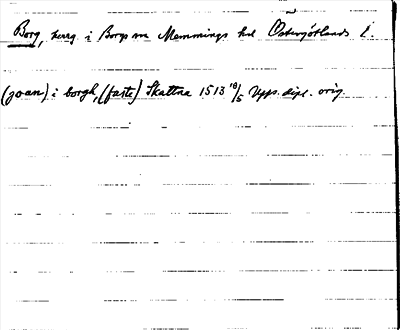 Borg, herrg. i Borgs sn Memmings hd Östergötlands l.
(joan) i borgh, (faste) Skattna 1513 18/5 Upps. dipl. orig.